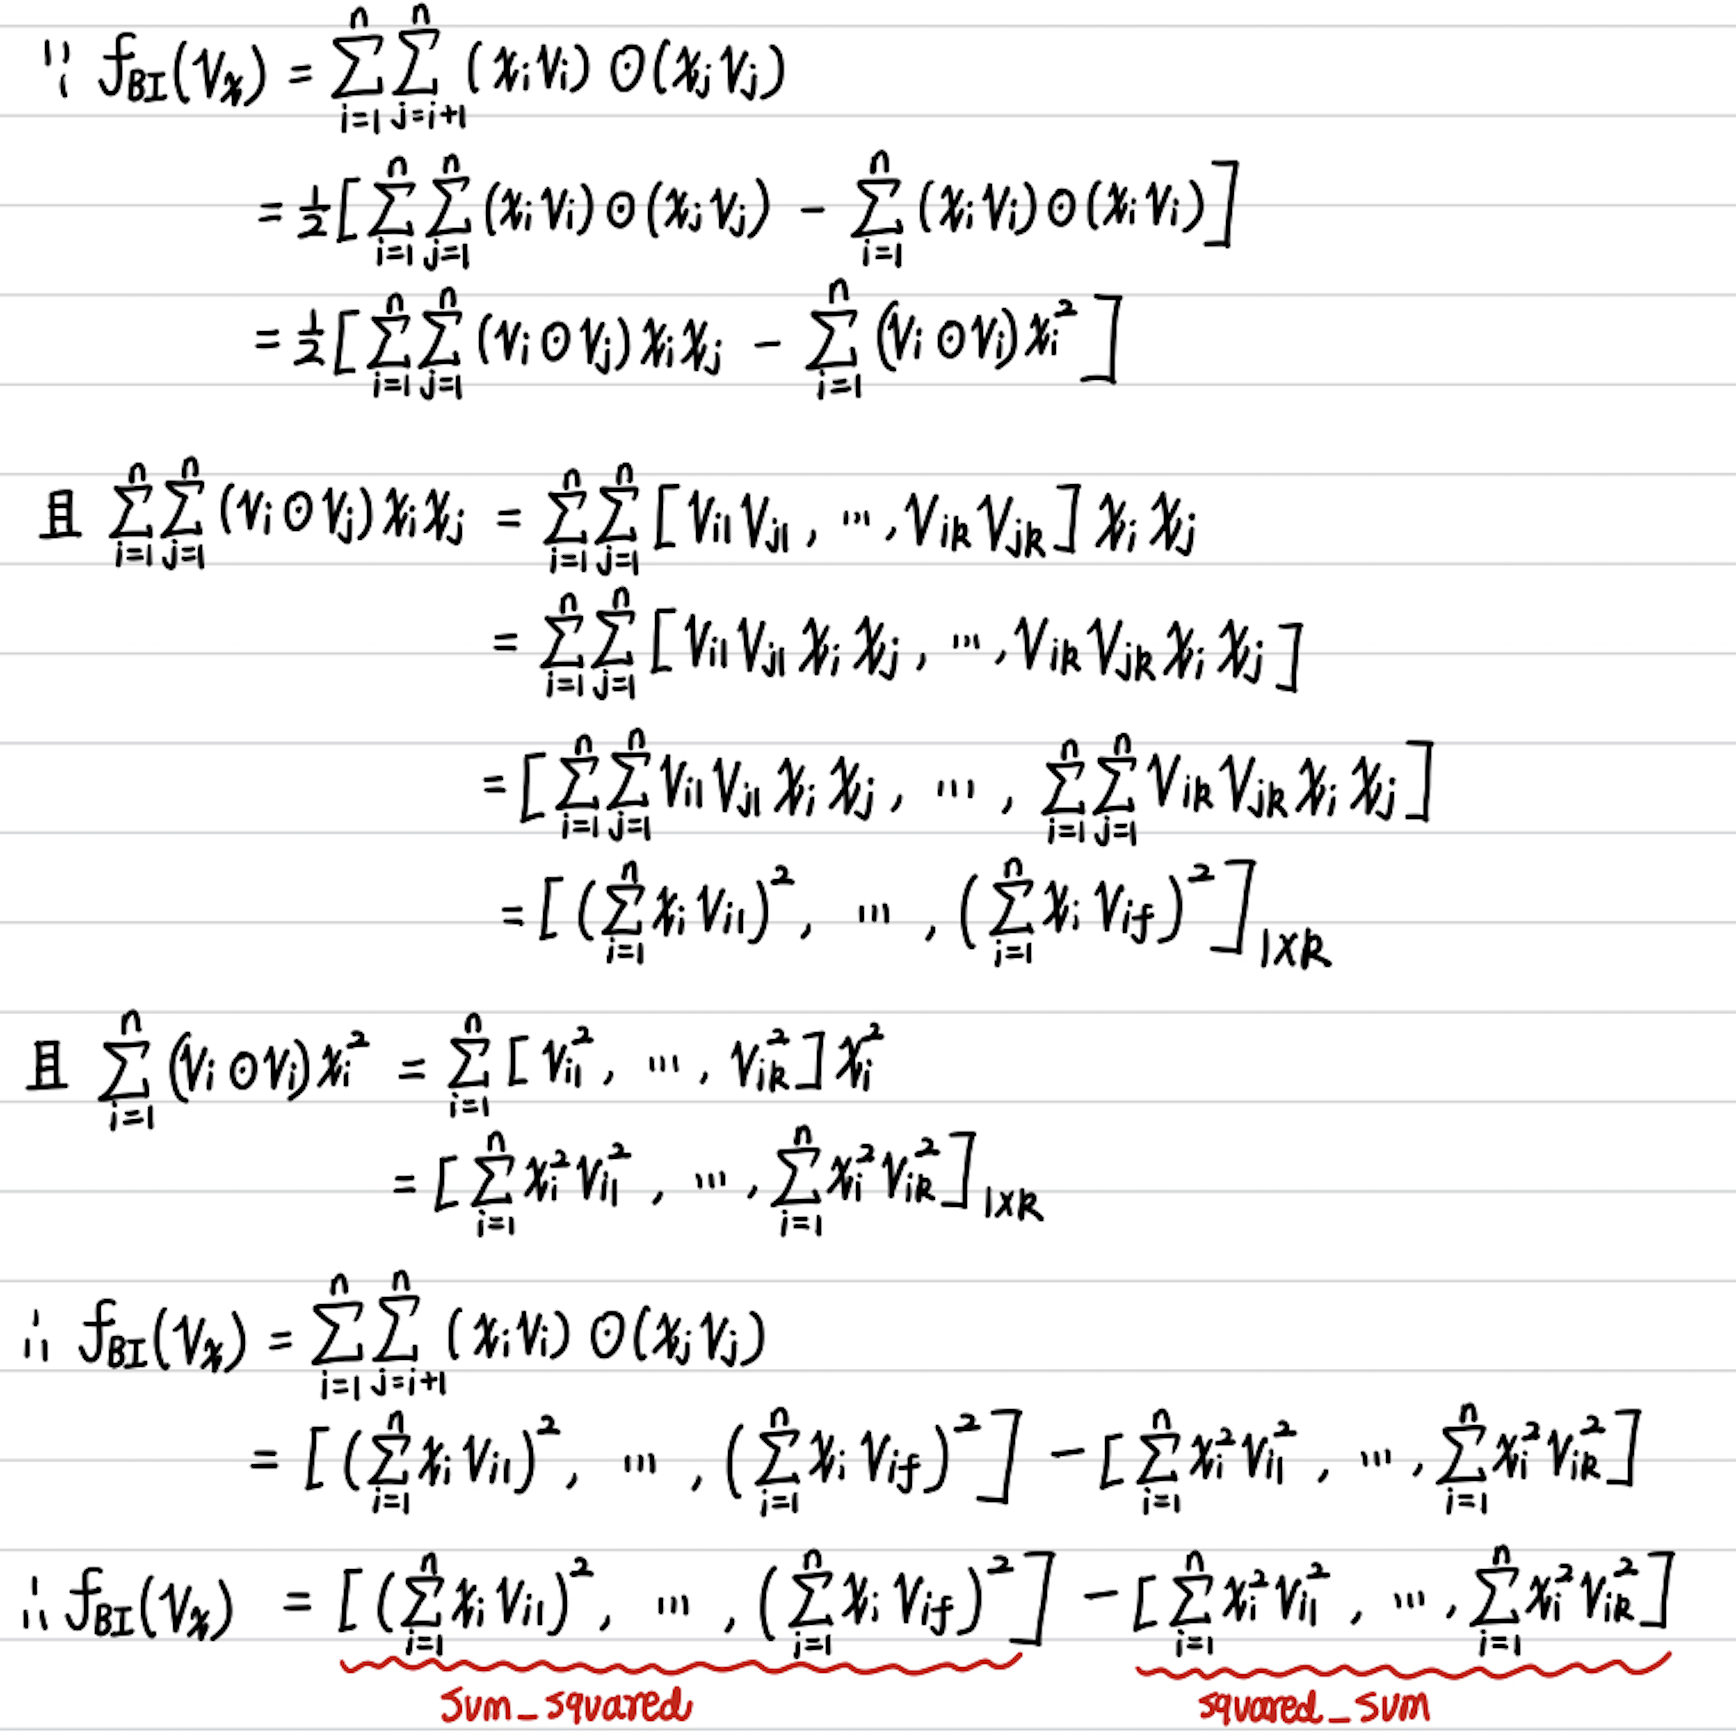 ∵ f_BI(V_x) = ∑_{i=1}^{n} ∑_{j=i+1}^{n} (x_i v_i) ⊙ (x_j v_j)
= 1/2 [ ∑_{i=1}^{n} ∑_{j=1}^{n} (x_i v_i) ⊙ (x_j v_j) - ∑_{i=1}^{n} (x_i v_i) ⊙ (x_i v_i) ]
= 1/2 [ ∑_{i=1}^{n} ∑_{j=1}^{n} (v_i ⊙ v_j) x_i x_j - ∑_{i=1}^{n} (v_i ⊙ v_i) x_i^2 ]
且 ∑_{i=1}^{n} ∑_{j=1}^{n} (v_i ⊙ v_j) x_i x_j = ∑_{i=1}^{n} ∑_{j=1}^{n} [ v_{i1} v_{j1}, ..., v_{ik} v_{jk} ] x_i x_j
= ∑_{i=1}^{n} ∑_{j=1}^{n} [ v_{i1} v_{j1} x_i x_j, ..., v_{ik} v_{jk} x_i x_j ]
= [ ∑_{i=1}^{n} ∑_{j=1}^{n} v_{i1} v_{j1} x_i x_j, ..., ∑_{i=1}^{n} ∑_{j=1}^{n} v_{ik} v_{jk} x_i x_j ]
= [ (∑_{i=1}^{n} x_i v_{i1})^2, ..., (∑_{i=1}^{n} x_i v_{if})^2 ]_{1×k}
且 ∑_{i=1}^{n} (v_i ⊙ v_i) x_i^2 = ∑_{i=1}^{n} [ v_{i1}^2, ..., v_{ik}^2 ] x_i^2
= [ ∑_{i=1}^{n} x_i^2 v_{i1}^2, ..., ∑_{i=1}^{n} x_i^2 v_{ik}^2 ]_{1×k}
∴ f_BI(V_x) = ∑_{i=1}^{n} ∑_{j=i+1}^{n} (x_i v_i) ⊙ (x_j v_j)
= [ (∑_{i=1}^{n} x_i v_{i1})^2, ..., (∑_{i=1}^{n} x_i v_{if})^2 ] - [ ∑_{i=1}^{n} x_i^2 v_{i1}^2, ..., ∑_{i=1}^{n} x_i^2 v_{ik}^2 ]
∴ f_BI(V_x) = [ (∑_{i=1}^{n} x_i v_{i1})^2, ..., (∑_{i=1}^{n} x_i v_{if})^2 ] - [ ∑_{i=1}^{n} x_i^2 v_{i1}^2, ..., ∑_{i=1}^{n} x_i^2 v_{ik}^2 ]
sum_squared squared_sum